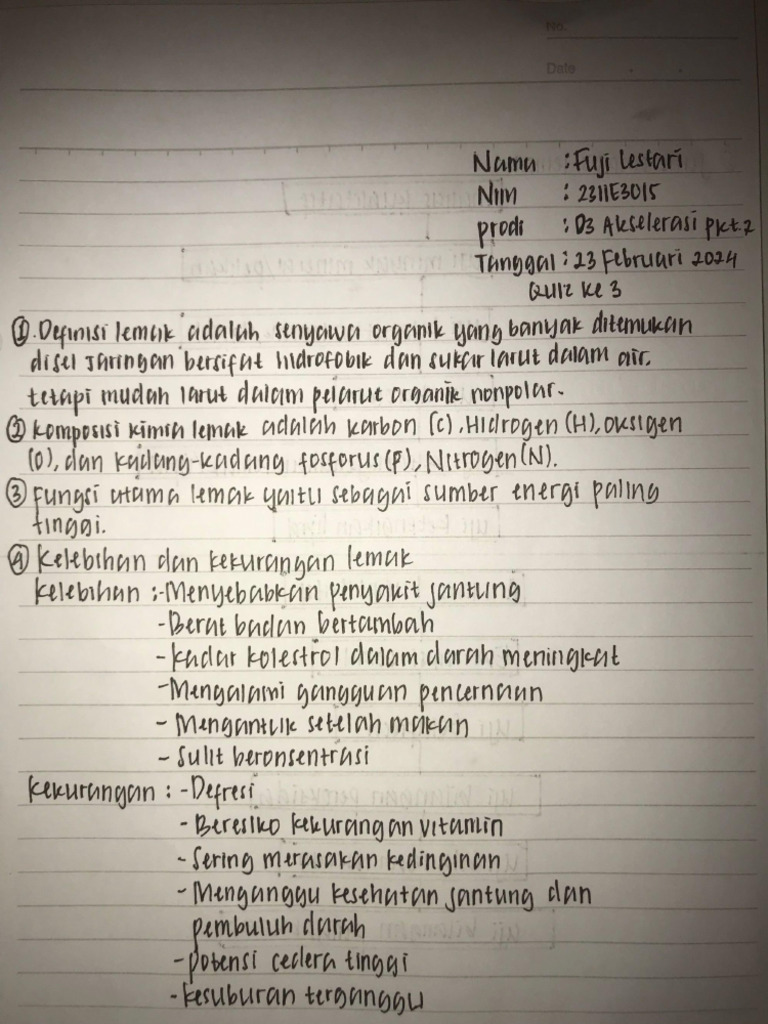 No.
Date
Nama : Fuji Lestari
Nim : 2311E3015
prodi : D3 Akselerasi pkt.2
Tanggal : 23 Februari 2024
Quiz ke 3
① Definisi lemak adalah senyawa organik yang banyak ditemukan
disel jaringan bersifat hidrofobik dan sukar larut dalam air,
tetapi mudah larut dalam pelarut organik nonpolar.
② komposisi kimia lemak adalah karbon (C), Hidrogen (H), oksigen
(O), dan kadang-kadang fosforus (P), Nitrogen (N).
③ Fungsi utama lemak yaitu sebagai sumber energi paling
tinggi.
④ Kelebihan dan kekurangan lemak
kelebihan : -Menyebabkan penyakit jantung
-Berat badan bertambah
-kadar kolestrol dalam darah meningkat
-Mengalami gangguan pencernaan
- Mengantuk setelah makan
- Sulit beronsentrasi
kekurangan : -Defresi
-Beresiko kekurangan vitamin
-Sering merasakan kedinginan
-Menganggu kesehatan jantung dan
pembuluh darah
-potensi cedera tinggi
-kesuburan terganggu